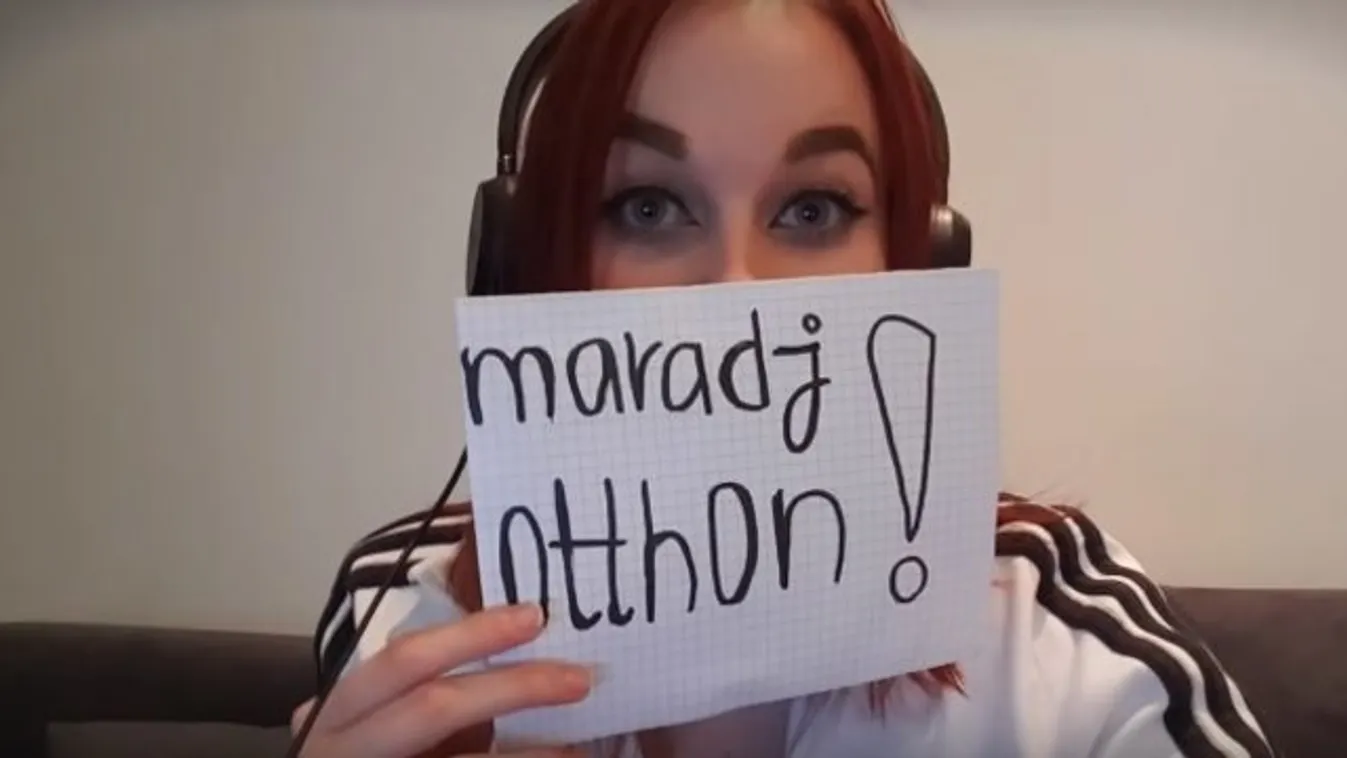 maradj !
otthon